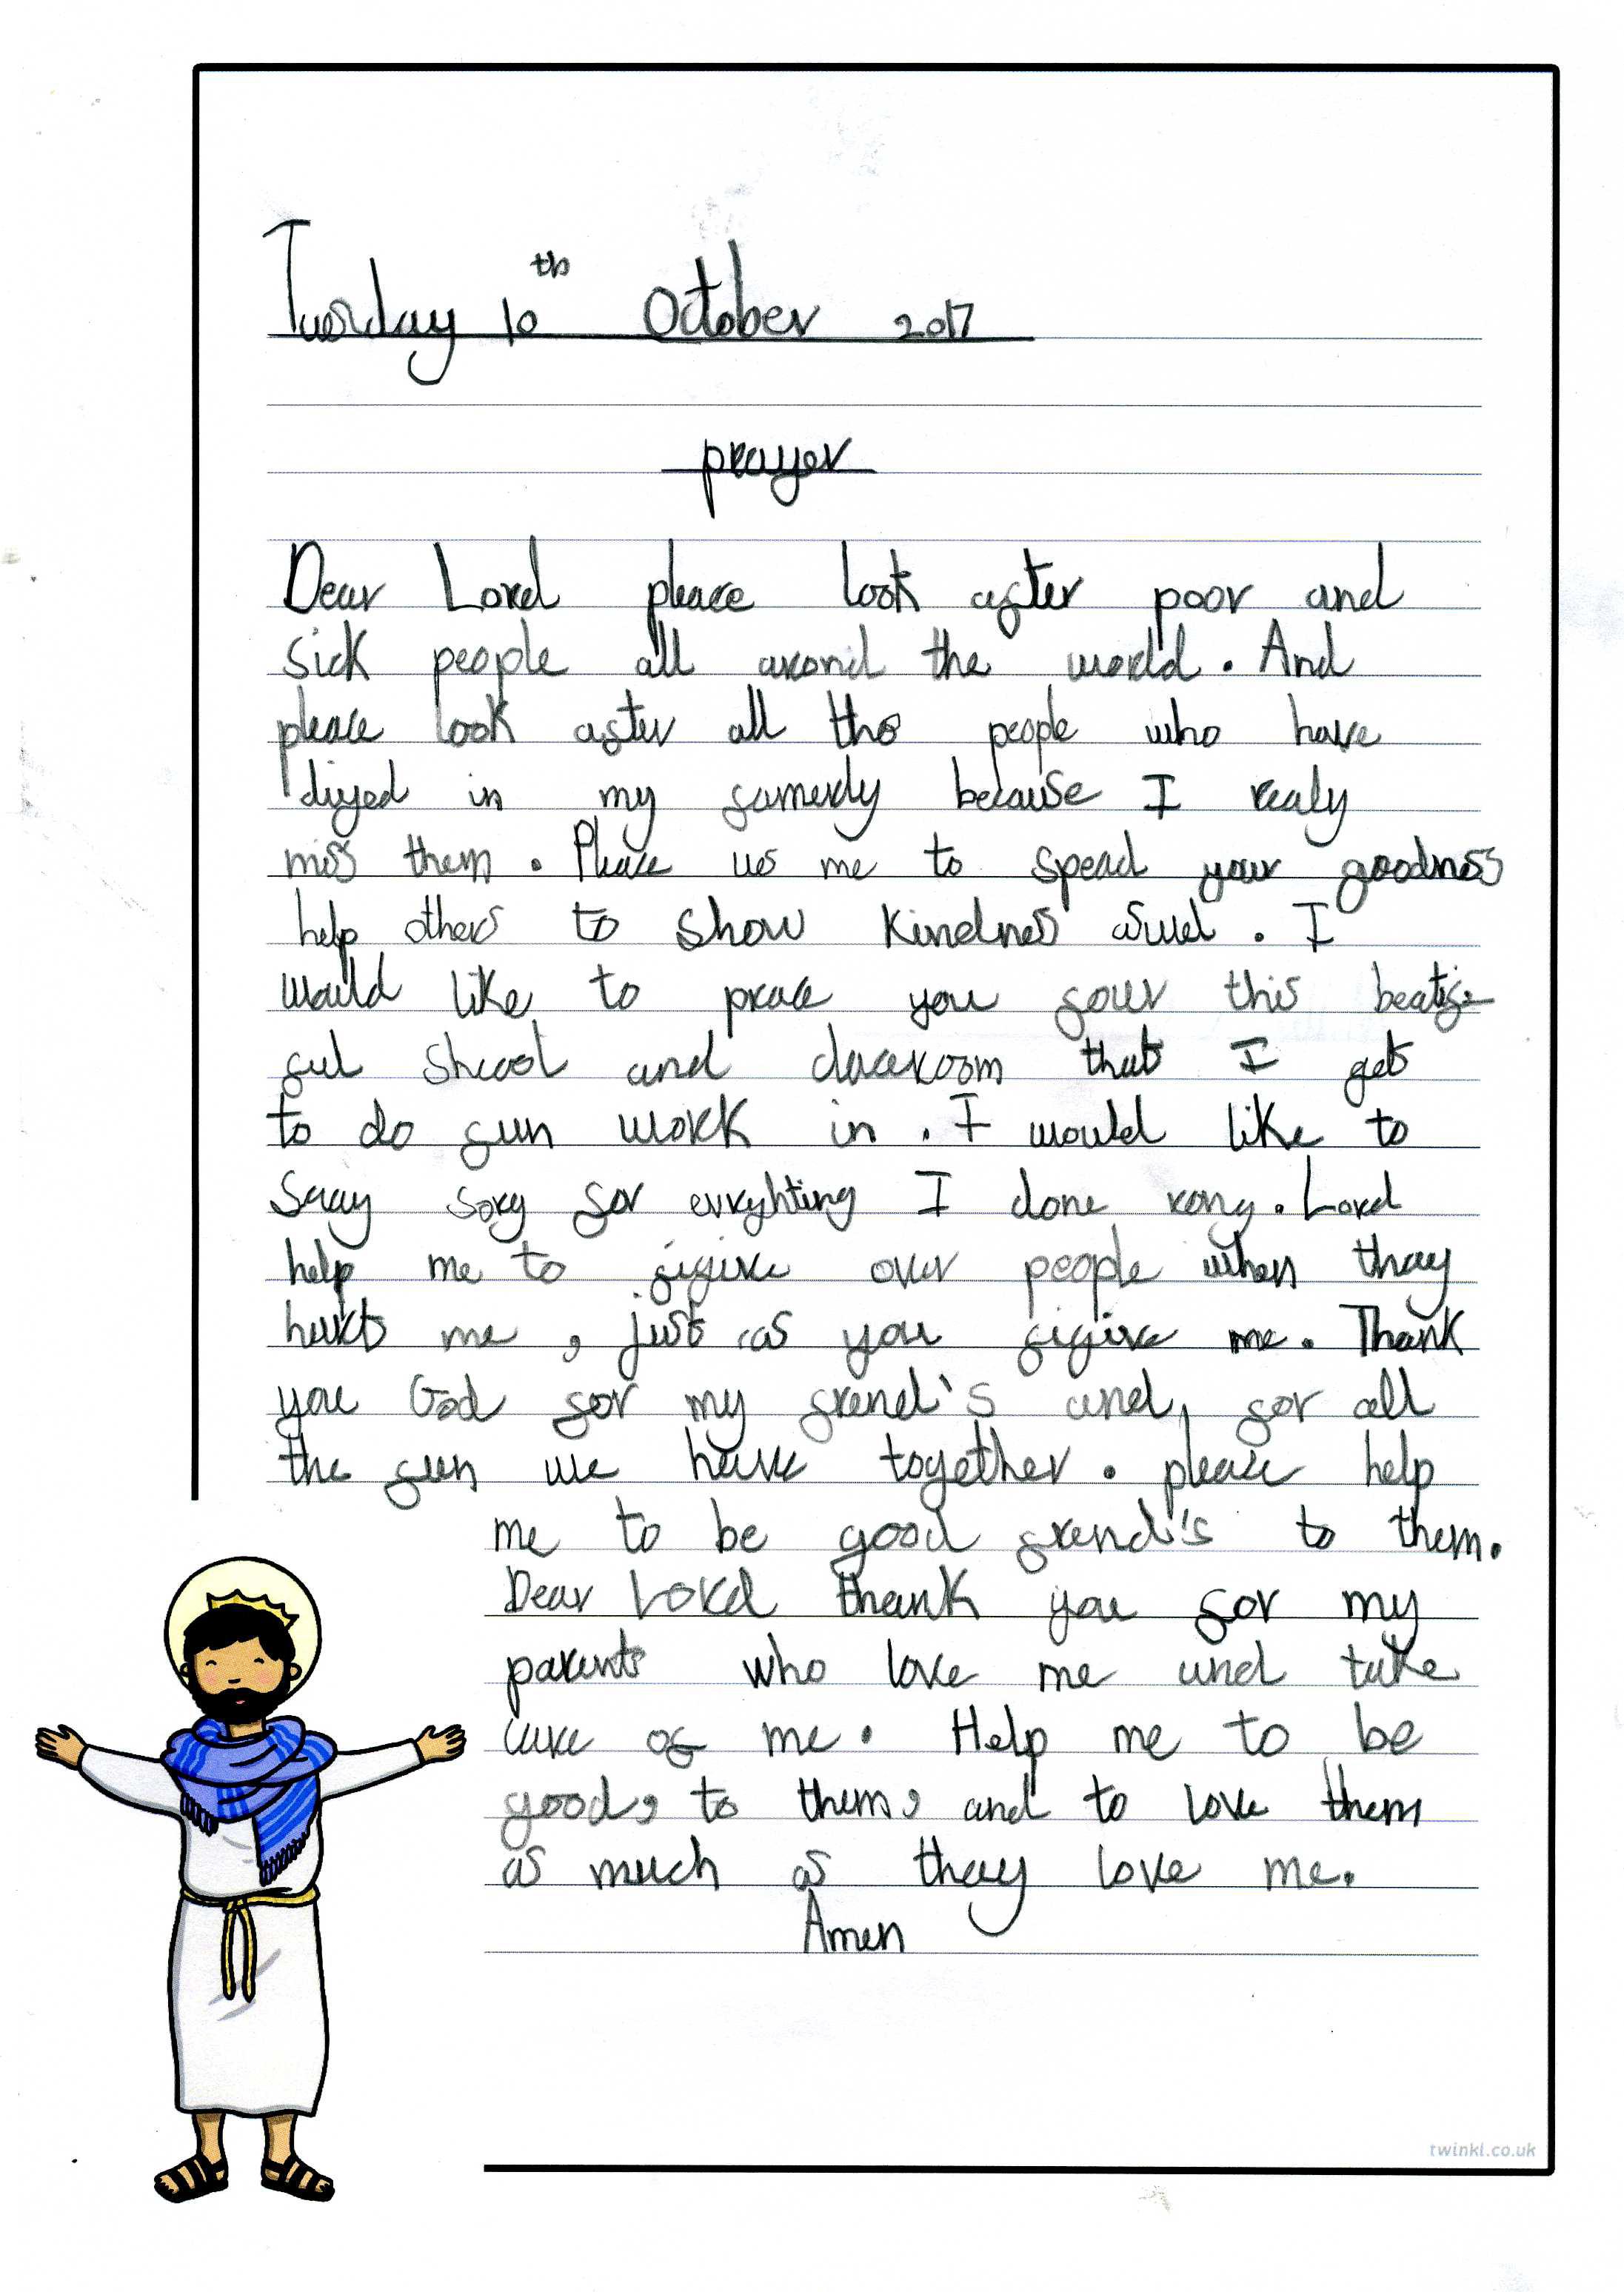 Tuesday 10th October 2017
prayer
Dear Lord pleace look after poor and
sick people all arond the world. And
pleace look after all the people who have
diyed in my famerly because I realy
miss them. Pleace us me to spead your goodness
help others to show kindness
would like to prace you four this beatif-
ful shcool and claceroom that I get
to do fun work in. I would like to
Saay sory for evryhting I done rong. Lord
help me to figive over people when thay
hurts me, just as you figive me. Thank
you God for my frend's and, for all
the fun we have together. please help
me to be good frend's to them.
Dear Lord thank you for my
parents who love me and take
care of me. Help me to be
good, to them, and to love them
as much as thay love me.
Amen
twinkl.co.uk